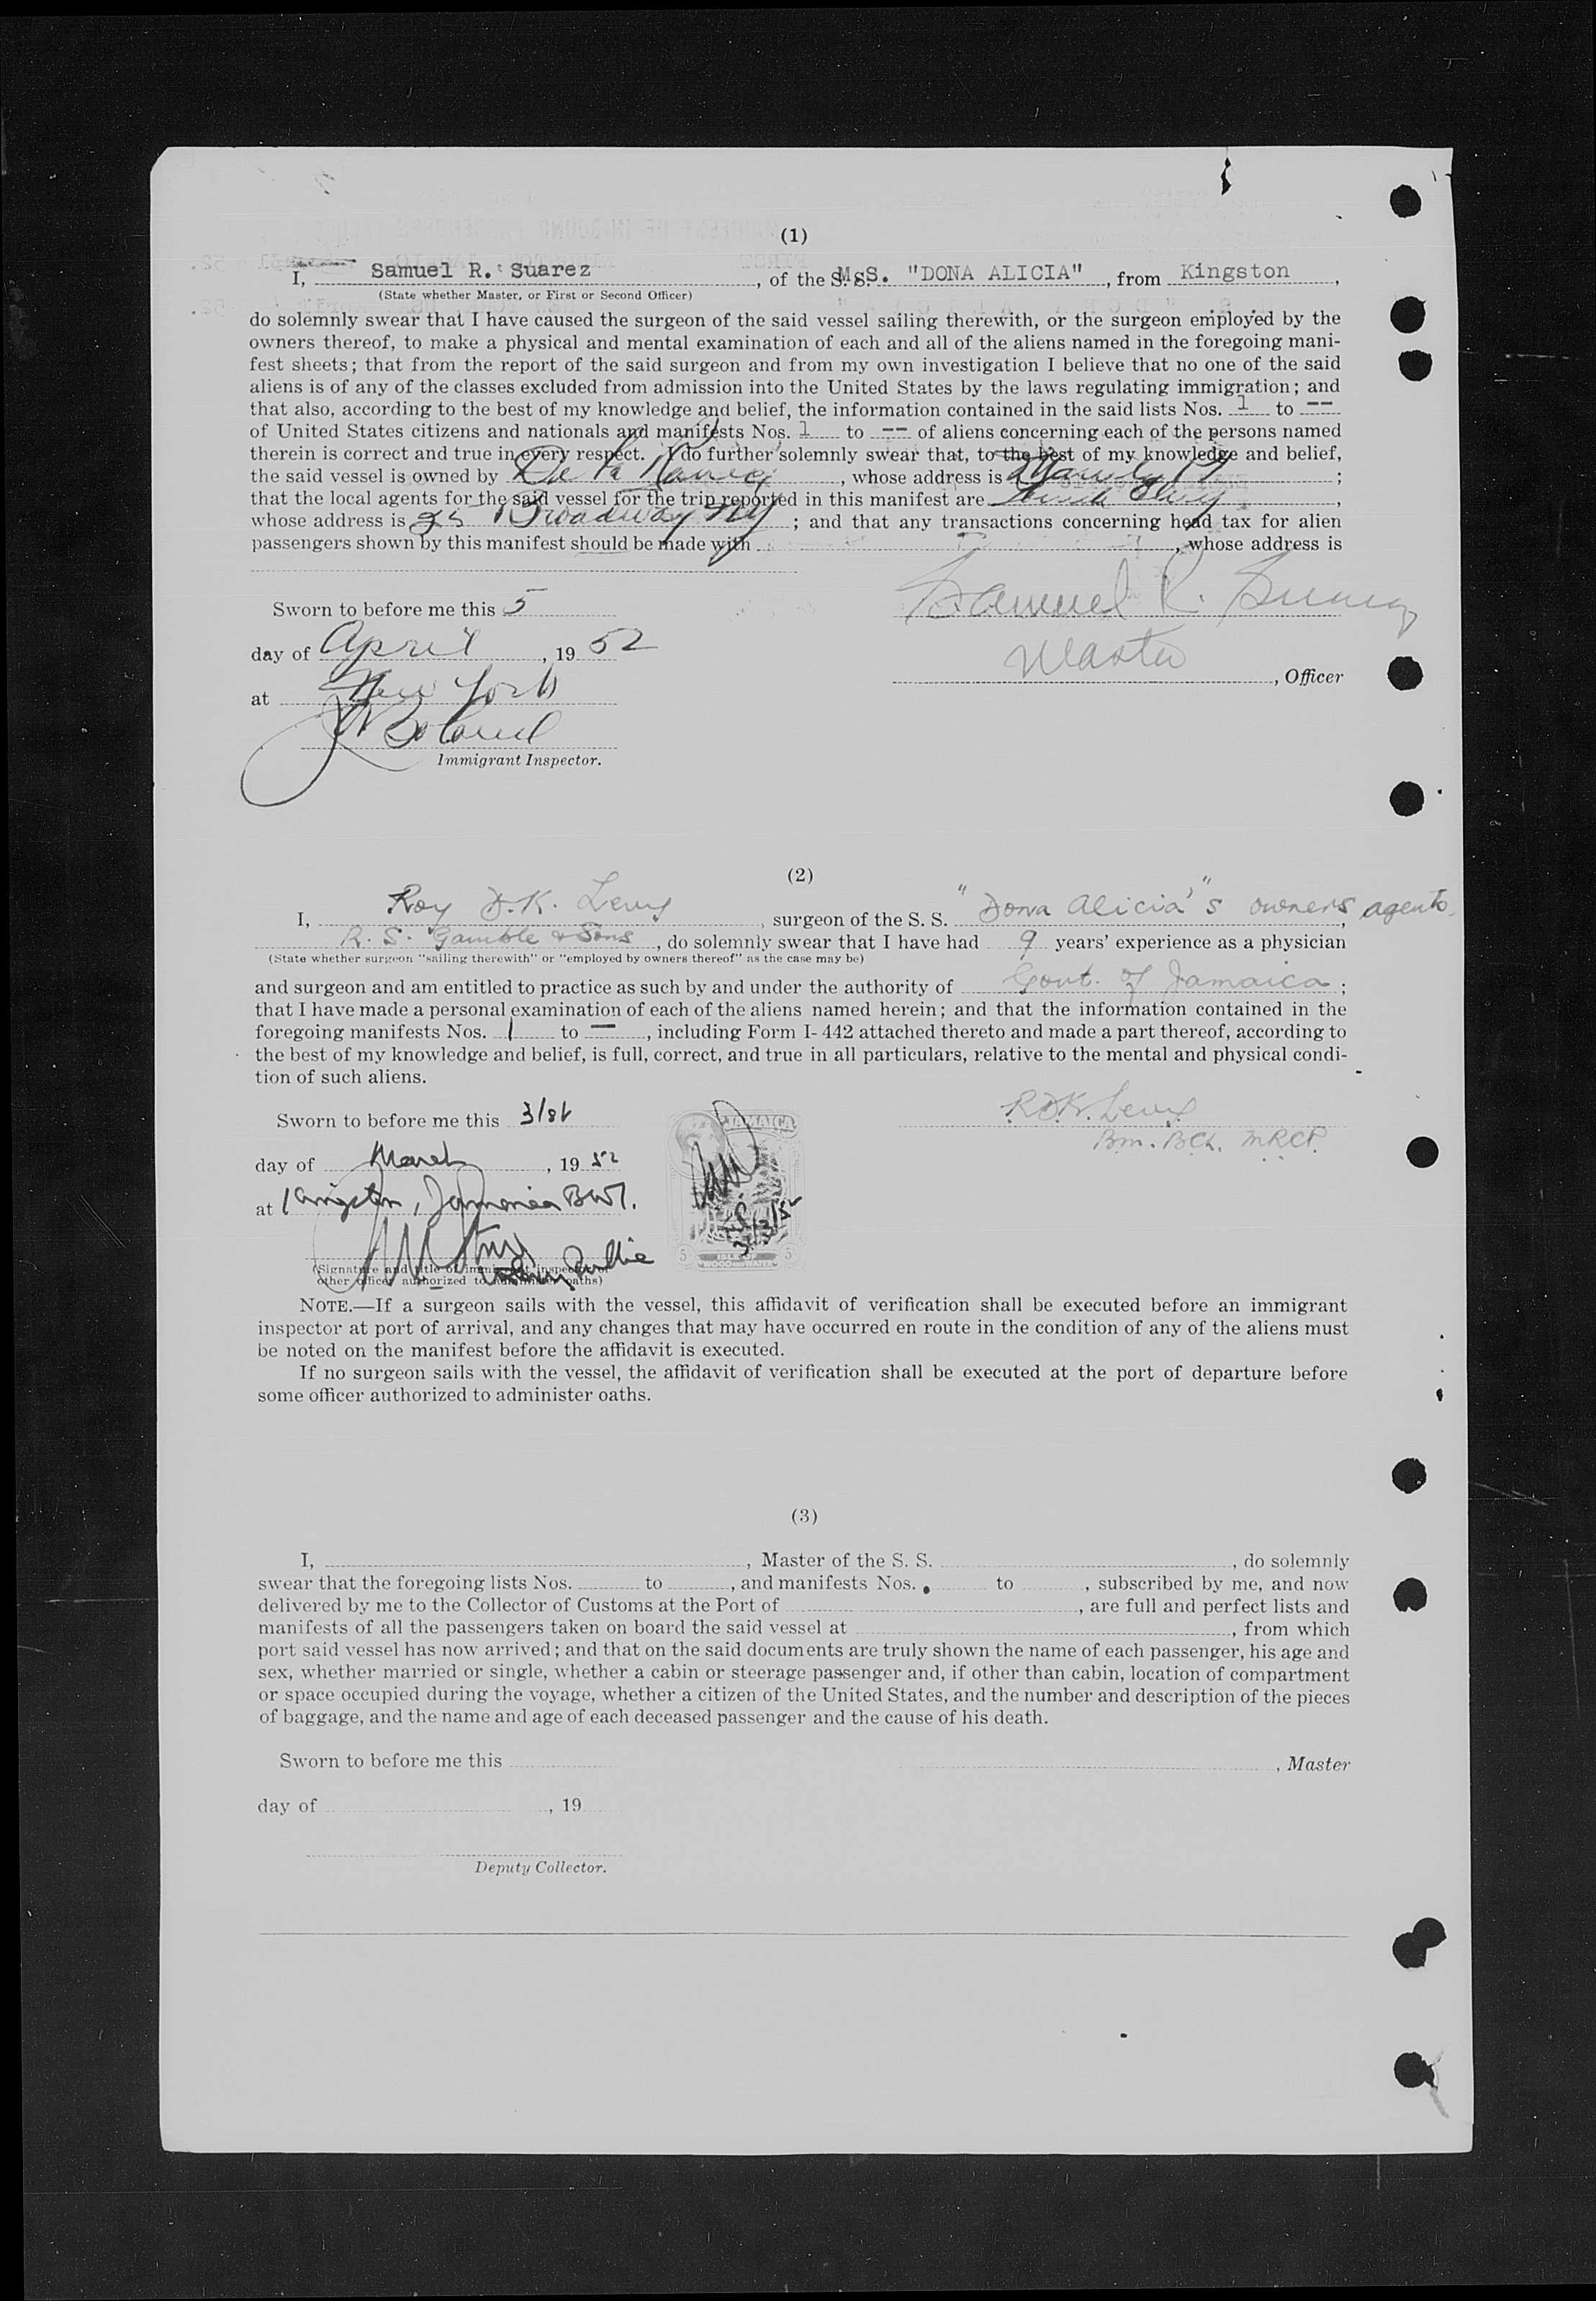 (1)
I, Samuel R. Suarez, of the M.S. "DONA ALICIA", from Kingston,
(State whether Master, or First or Second Officer)
do solemnly swear that I have caused the surgeon of the said vessel sailing therewith, or the surgeon employed by the
owners thereof, to make a physical and mental examination of each and all of the aliens named in the foregoing mani-
fest sheets; that from the report of the said surgeon and from my own investigation I believe that no one of the said
aliens is of any of the classes excluded from admission into the United States by the laws regulating immigration; and
that also, according to the best of my knowledge and belief, the information contained in the said lists Nos. 1 to --
of United States citizens and nationals and manifests Nos. 1 to -- of aliens concerning each of the persons named
therein is correct and true in every respect. I do further solemnly swear that, to the best of my knowledge and belief,
the said vessel is owned by De La Rama, whose address is Manila P I;
that the local agents for the said vessel for the trip reported in this manifest are,
whose address is 25 Broadway NY; and that any transactions concerning head tax for alien
passengers shown by this manifest should be made with, whose address is
Sworn to before me this 5
Samuel R. Suarez
day of April, 1952
Master, Officer
at New York
Boland
Immigrant Inspector.
(2)
I, Roy D.K. Levy, surgeon of the S. S. "Dona Alicia's" owners agents
R. S. Gamble & Sons, do solemnly swear that I have had 9 years' experience as a physician
(State whether surgeon "sailing therewith" or "employed by owners thereof" as the case may be)
and surgeon and am entitled to practice as such by and under the authority of Govt. of Jamaica;
that I have made a personal examination of each of the aliens named herein; and that the information contained in the
foregoing manifests Nos. 1 to —, including Form I-442 attached thereto and made a part thereof, according to
the best of my knowledge and belief, is full, correct, and true in all particulars, relative to the mental and physical condi-
tion of such aliens.
Sworn to before me this 31st
R D K. Levy
Bm. BCh. MRCP.
JAMAICA
day of March, 1952
at Kingston, Jamaica BWI.
31/3/52
5 ISLE OF 5
WOOD AND WATER
(Signature and title of immigrant inspector or
other officer authorized to administer oaths)
NOTE.—If a surgeon sails with the vessel, this affidavit of verification shall be executed before an immigrant
inspector at port of arrival, and any changes that may have occurred en route in the condition of any of the aliens must
be noted on the manifest before the affidavit is executed.
If no surgeon sails with the vessel, the affidavit of verification shall be executed at the port of departure before
some officer authorized to administer oaths.
(3)
I, , Master of the S. S. , do solemnly
swear that the foregoing lists Nos. to , and manifests Nos. to , subscribed by me, and now
delivered by me to the Collector of Customs at the Port of , are full and perfect lists and
manifests of all the passengers taken on board the said vessel at , from which
port said vessel has now arrived; and that on the said documents are truly shown the name of each passenger, his age and
sex, whether married or single, whether a cabin or steerage passenger and, if other than cabin, location of compartment
or space occupied during the voyage, whether a citizen of the United States, and the number and description of the pieces
of baggage, and the name and age of each deceased passenger and the cause of his death.
Sworn to before me this
, Master
day of , 19
Deputy Collector.